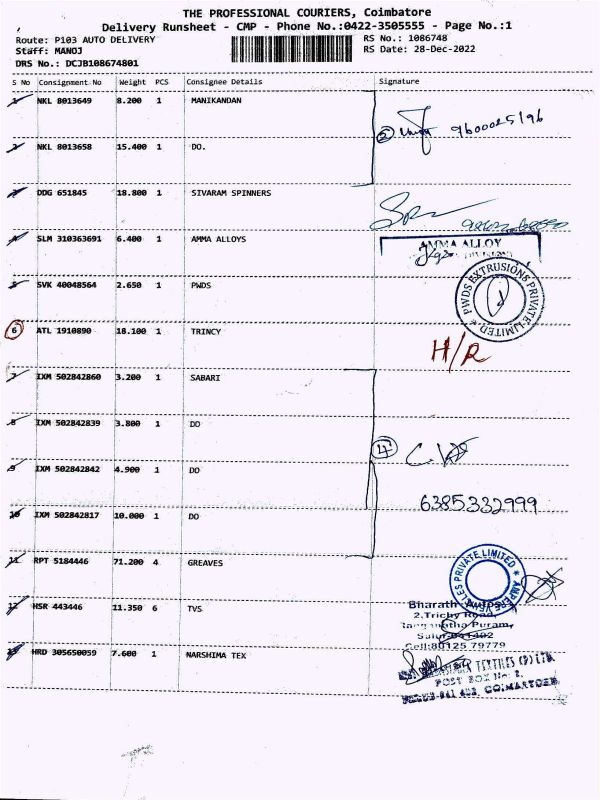 THE PROFESSIONAL COURIERS, Coimbatore
Delivery Runsheet - CMP - Phone No.:0422-3505555 - Page No.:1
Route: P103 AUTO DELIVERY
RS No.: 1086748
Staff: MANOJ
RS Date: 28-Dec-2022
DRS No.: DCJB108674801
S No Consignment No Weight PCS Consignee Details Signature
1 NKL 8013649 8.200 1 MANIKANDAN
② 9600025196
2 NKL 8013658 15.400 1 DO.
3 DDG 651845 18.800 1 SIVARAM SPINNERS
4 SLM 310363691 6.400 1 AMMA ALLOYS
AMMA ALLOY
5 SVK 40048564 2.650 1 PWDS
PWDS EXTRUSIONS PRIVATE LIMITED
6 ATL 1910890 18.100 1 TRINCY
H/R
7 IXM 502842860 3.200 1 SABARI
8 IXM 502842839 3.800 1 DO
④
9 IXM 502842842 4.900 1 DO
6385332999
10 IXM 502842817 10.000 1 DO
11 RPT 5184446 71.200 4 GREAVES
AMPERE VEHICLES PRIVATE LIMITED
12 HSR 443446 11.350 6 TVS
Bharath Autos
2,Trichy Road,
Ranganatha Puram,
Sulur-641402
Cell:80125 79779
13 HRD 305650059 7.600 1 NARSHIMA TEX
TEXTILES (P) LTD.
POST BOX No: 2,
COIMBATORE